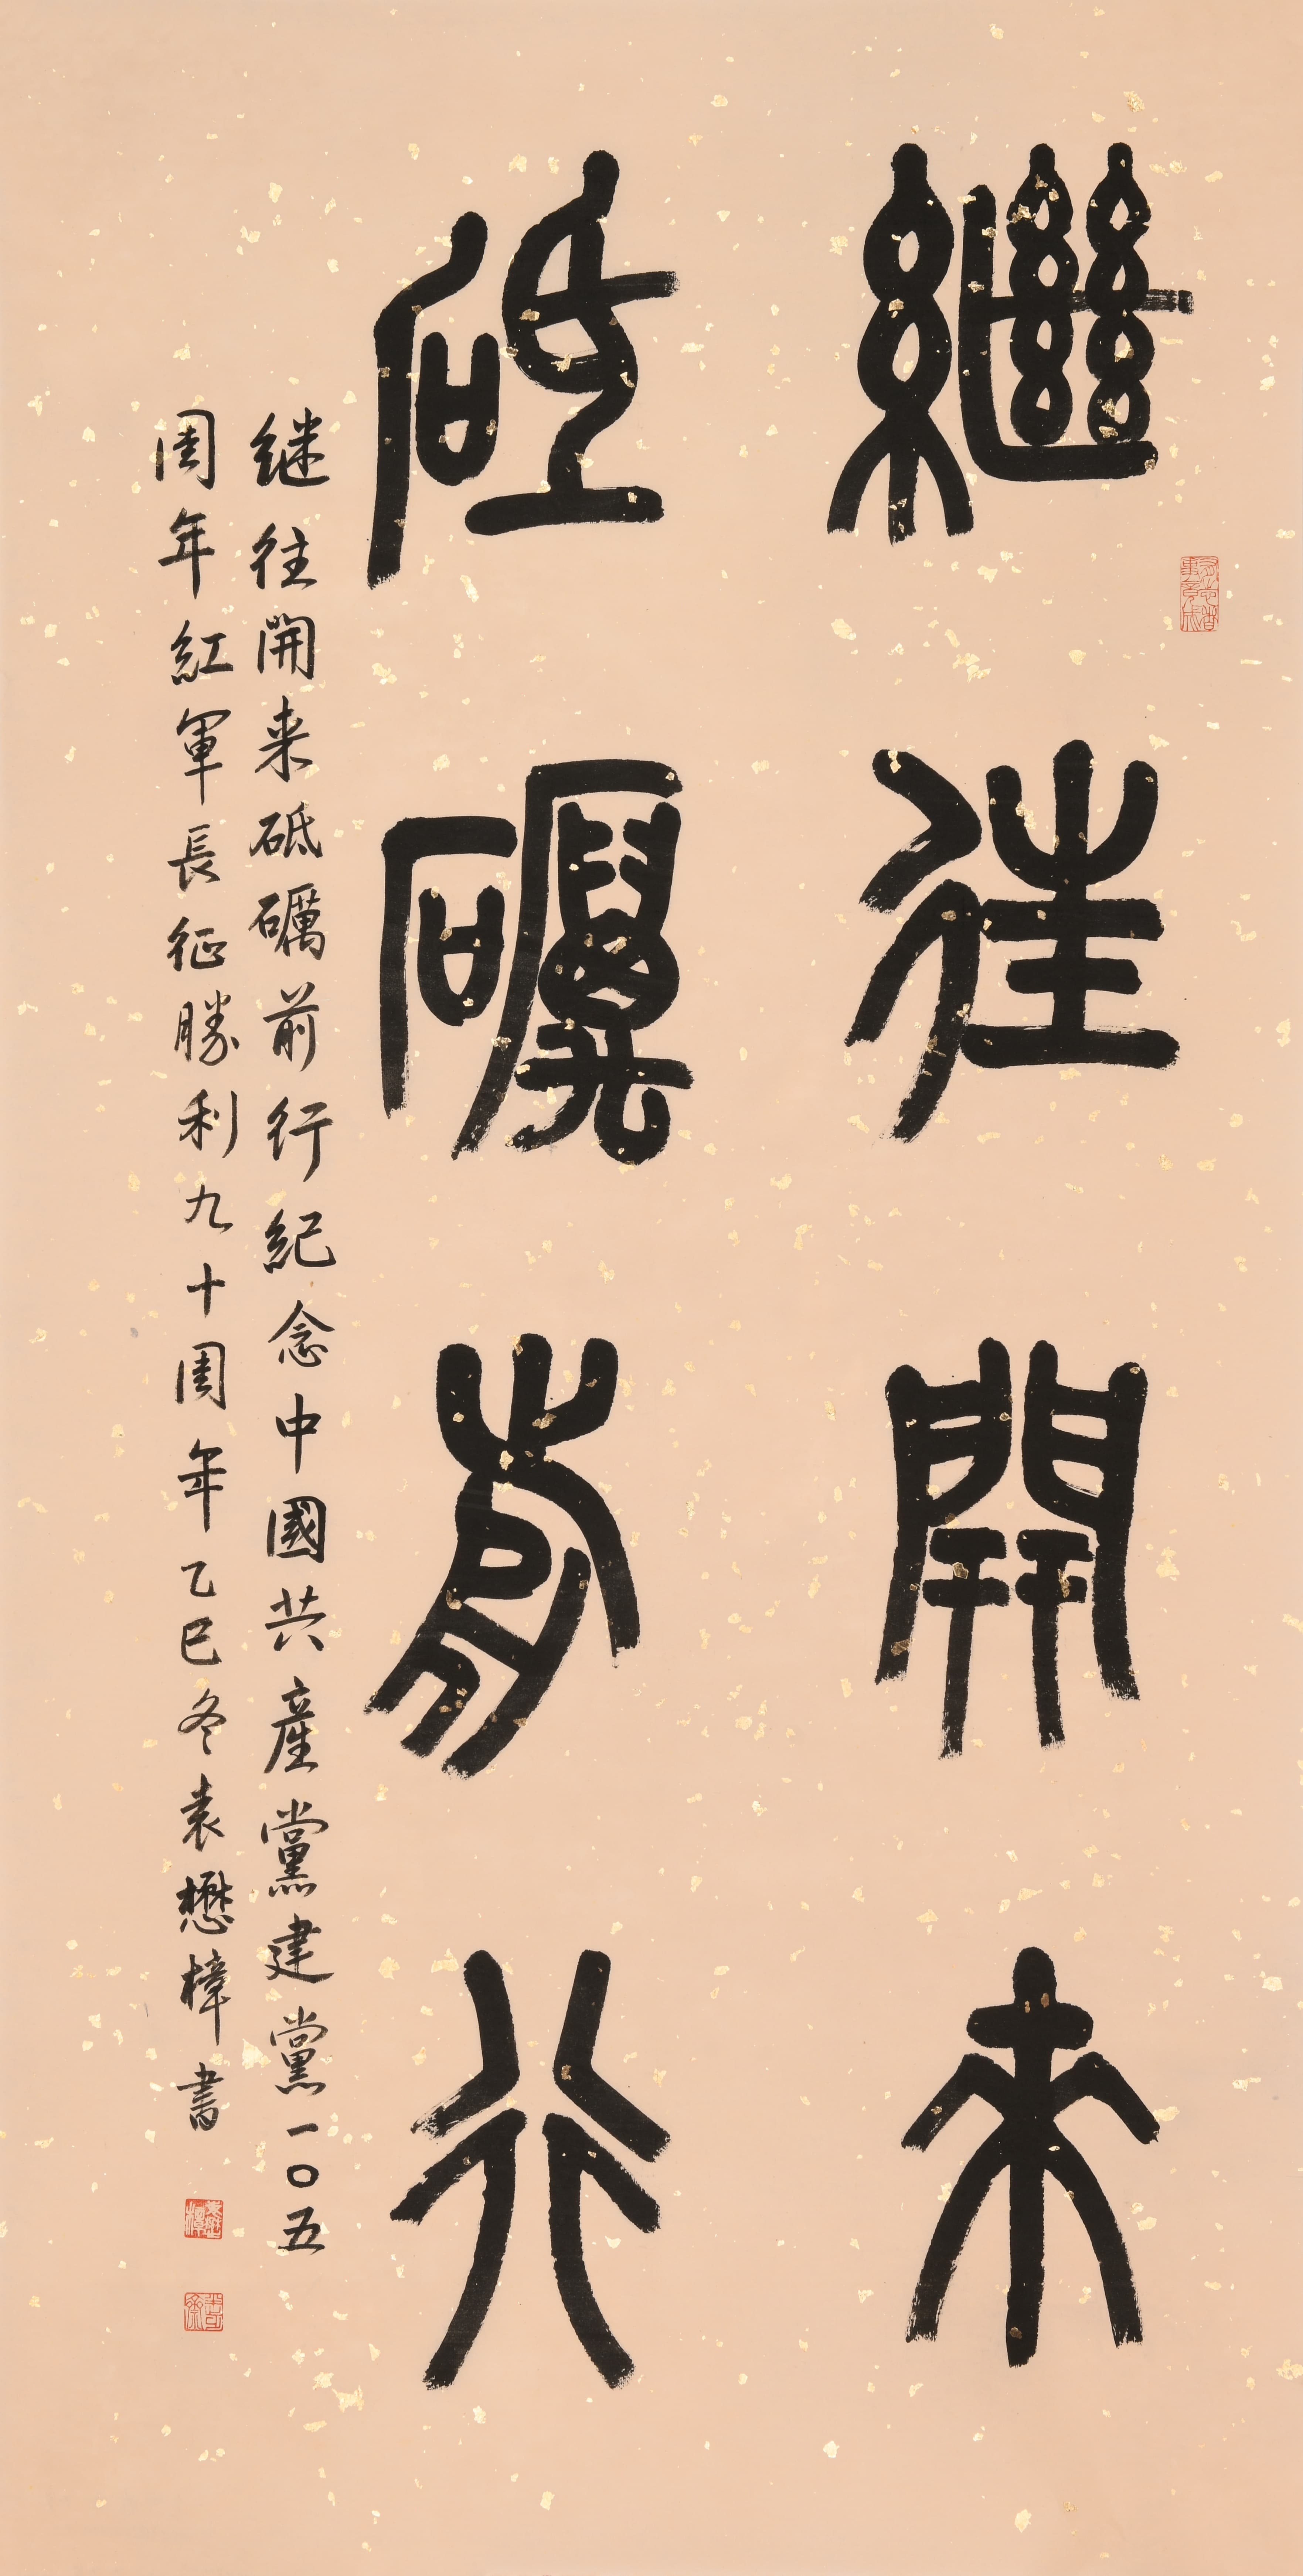 繼往開來
砥礪前行
继往開来砥礪前行紀念中國共產黨建黨一〇五
周年紅軍長征勝利九十周年乙巳冬袁懋樟書
有志者事竟成
袁懋樟